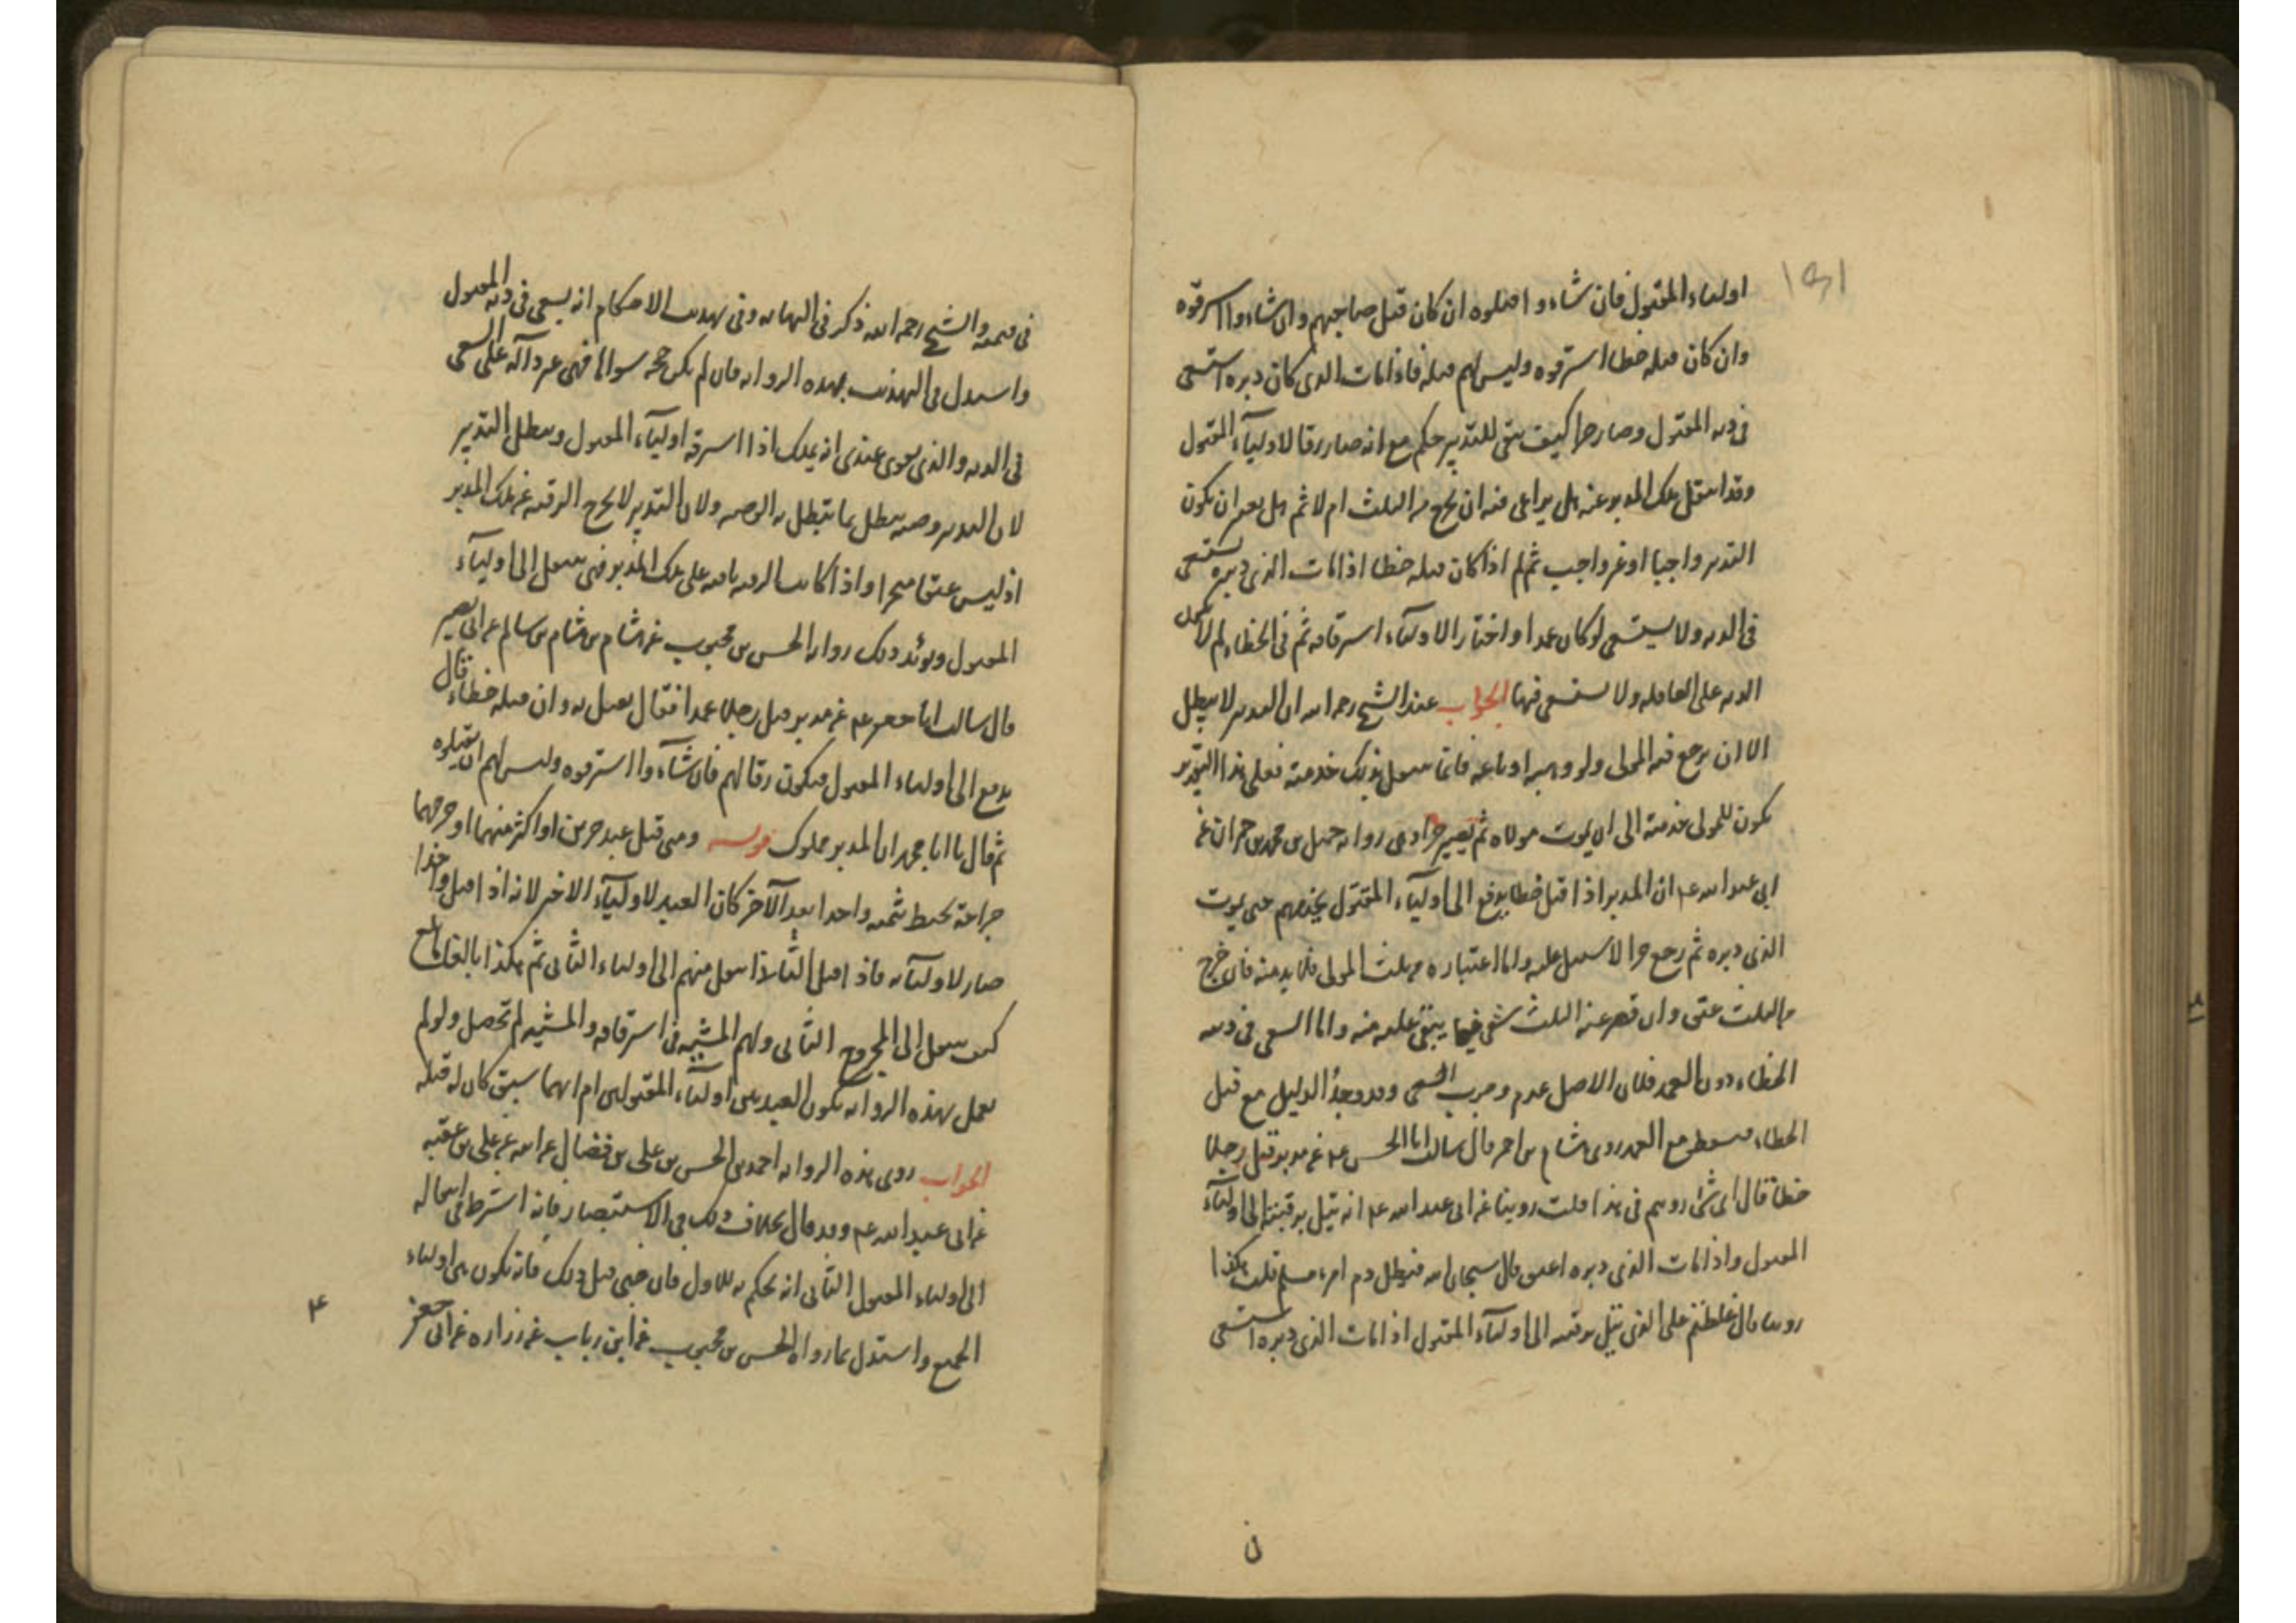 اولياء المقتول فان شاءوا قتلوه ان كان قتل صاحبهم وان شاءوا استرقوه
وان كان قتله خطا استرقوه وليس لهم قتله فاذا مات الذى كان دبره استسعى
فى دية المقتول وصار حرا كيف يبقى للتدبير حكم مع انه صار رقا لاولياء المقتول
وقد انتقل ملك المدبر عنه هل يراعى فيه ان يخرج من الثلث ام لا ثم هل يعتبر ان يكون
التدبير واجبا او غير واجب ثم لم اذا كان قتله خطا اذا مات الذى دبره يستسعى
فى الدية ولا يستسعى لو كان عمدا واختار الاولياء استرقاقه ثم فى الخطاء لم لا تحمل
الدية على العاقلة ولا يستسعى فيها الجواب عند الشيخ رحمه الله ان التدبير لا يبطل
الا ان يرجع فيه المولى ولو وهبه او باعه فانما ينتقل بذلك خدمته فعلى هذا التقدير
يكون للمولى خدمته الى ان يموت مولاه ثم يصير حرا وهى رواية جميل بن محمد بن حمران عن
ابى عبد الله عم ان المدبر اذا قتل خطا يدفع الى اولياء المقتول يخدمهم حتى يموت
الذى دبره ثم رجع حرا لا سبيل عليه واما اعتباره من ثلث المولى فلا بد منه فان خرج
من الثلث عتق وان قصر عنه الثلث سعى فيما يبقى عليه منه واما السعى فى دية
الخطاء دون العمد فلان الاصل عدم وجوب السعى وقد وجد الدليل مع قتل
الخطاء فسقط مع العمد روى هشام بن احمر قال سالت ابا الحسن عم عن مدبر قتل رجلا
خطا قال اى شئ رويتم فى هذا قلت روينا عن ابى عبد الله عم انه يتل برقبته الى اولياء
المقتول واذا مات الذى دبره اعتق قال سبحان الله فيطل دم امرء مسلم قلت هكذا
روينا قال غلطتم على ابى يتل برقبته الى اولياء المقتول اذا مات الذى دبره استسعى
فى قيمته والشيخ رحمه الله ذكر فى النهاية وفى تهذيب الاحكام انه يسعى فى دية المقتول
واستدل فى التهذيب بهذه الرواية فان لم يكن حجة سواها فهى غير دالة على السعى
فى الدية والذى يقوى عندى انه يملك اذا استرقه اولياء المقتول ويبطل التدبير
لان التدبير وصية يبطل بما تبطل به الوصية ولان التدبير لا يخرج الرقبة عن ملك المدبر
اذ ليس عتقا منجزا واذا كانت الرقبة باقية على ملك المدبر فهى تنتقل الى اولياء
المقتول ويؤيد ذلك رواية الحسن بن محبوب عن هشام بن هشام بن سالم عن ابى بصير
قال سالت ابا جعفر عم عن مدبر قتل رجلا عمدا فقال يقتل به وان قتله خطاء قال
يدفع الى اولياء المقتول فيكون رقا لهم فان شاءوا استرقوه وليس لهم ان يقتلوه
ثم قال يا ابا محمد ان المدبر مملوك قوله ومتى قتل عبد حرين او اكثر منهما او جرحهما
جراحة تحيط بثمنه واحدا بعد الآخر كان العبد لاولياء الاخير لانه اذا قتل واحدا
صار لاوليائه فاذا قتل الثانى انتقل منهم الى اولياء الثانى ثم هكذا بالغا ما بلغ
كيف ينتقل الى المجروح الثانى ولهم المشية فى استرقاقه والمشية لم تحصل ولو لم
يعمل بهذه الرواية يكون العبد بين اولياء المقتولين ام ايهما سبق كان له قتله
الجواب روى هذه الرواية احمد بن الحسن بن على بن فضال عن ابيه عن على بن عقبة
عن ابى عبد الله عم وقد قال بخلاف ذلك فى الاستبصار فانه اشترط فى انتقاله
الى اولياء المقتول الثانى انه يحكم به للاول فان جنى قبل ذلك فانه يكون بين اولياء
الجميع واستدل بما رواه الحسن بن محبوب عن ابن رباب عن زرارة عن ابى جعفر